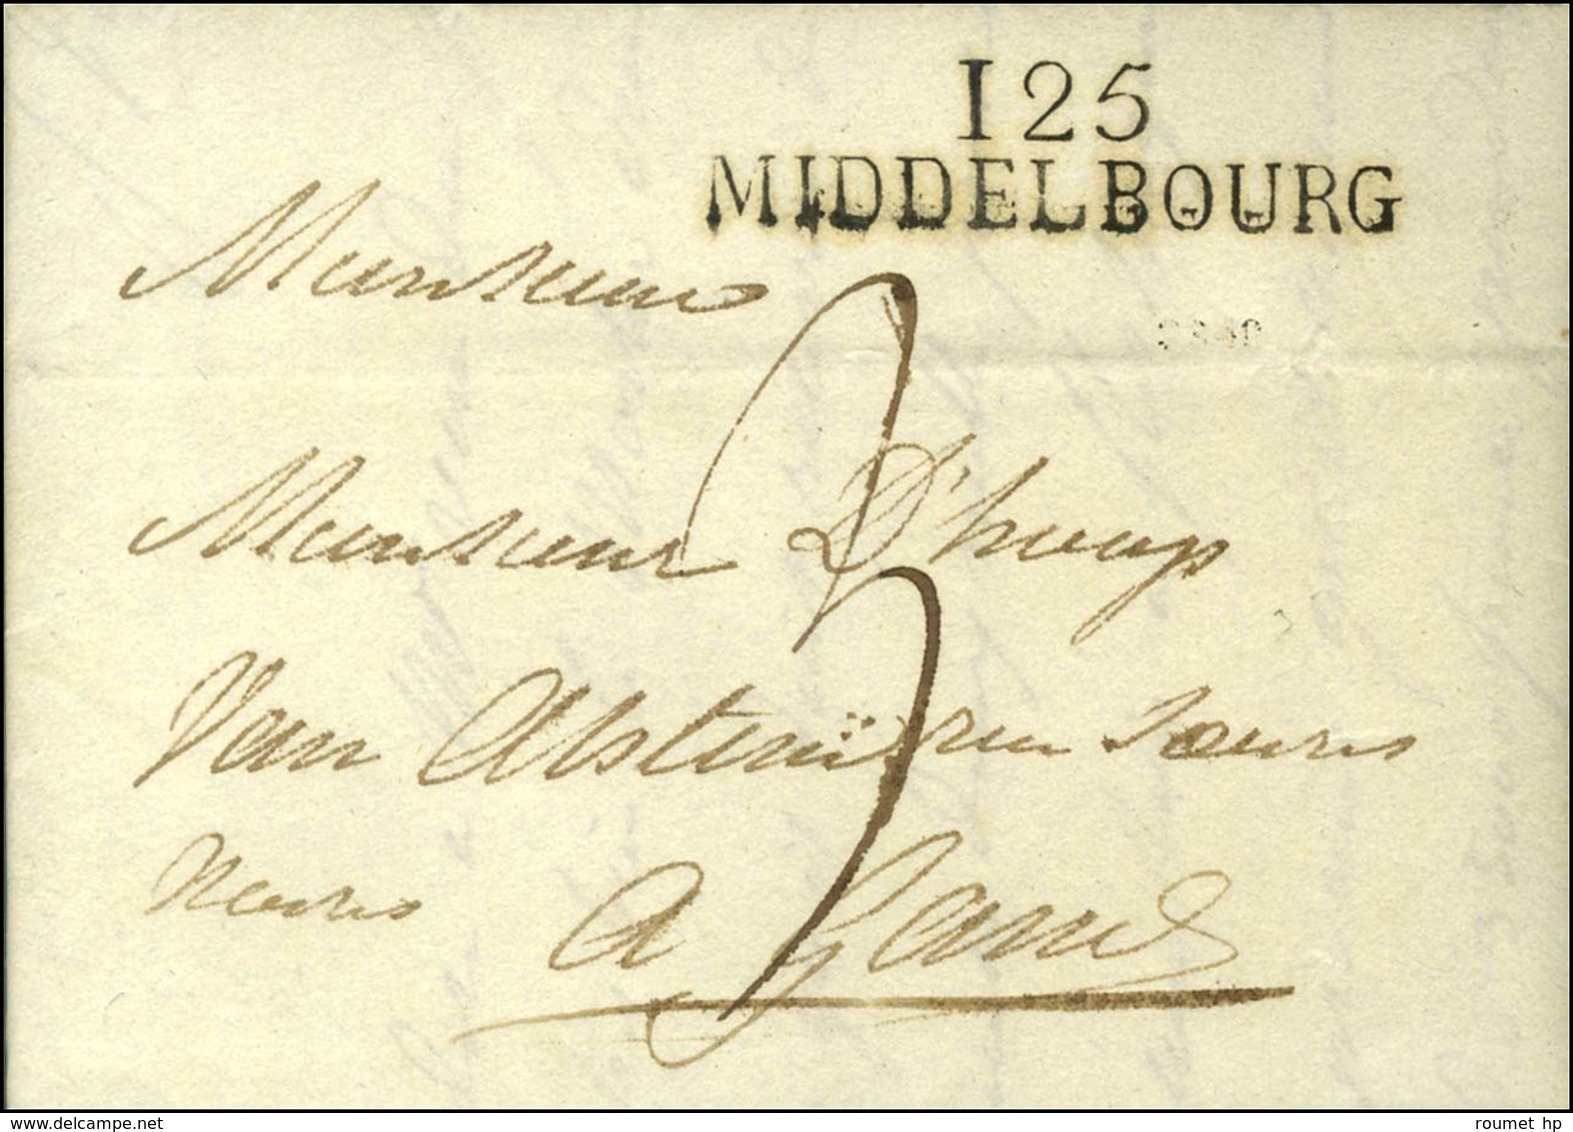 125
MIDDELBOURG
Monsieur
Monsieur D'hoop
Van Alstein rue Soeurs
Noires
A Gand
3
delcampe.net
roumet hp